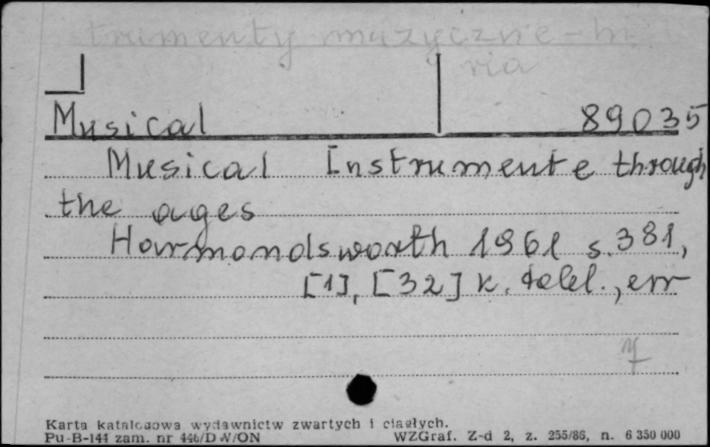 trumenty muzyczne - hi
ria
Musical 89035
Musical Instrumente through
the ages
Harmondsworth 1961 s. 381,
[1], [32] k. tabl., err
Karta katalogowa wydawnictw zwartych i ciągłych.
Pu-B-144 zam. nr 446/DW/ON WZGraf. Z-d 2, z. 255/86, n. 6 350 000